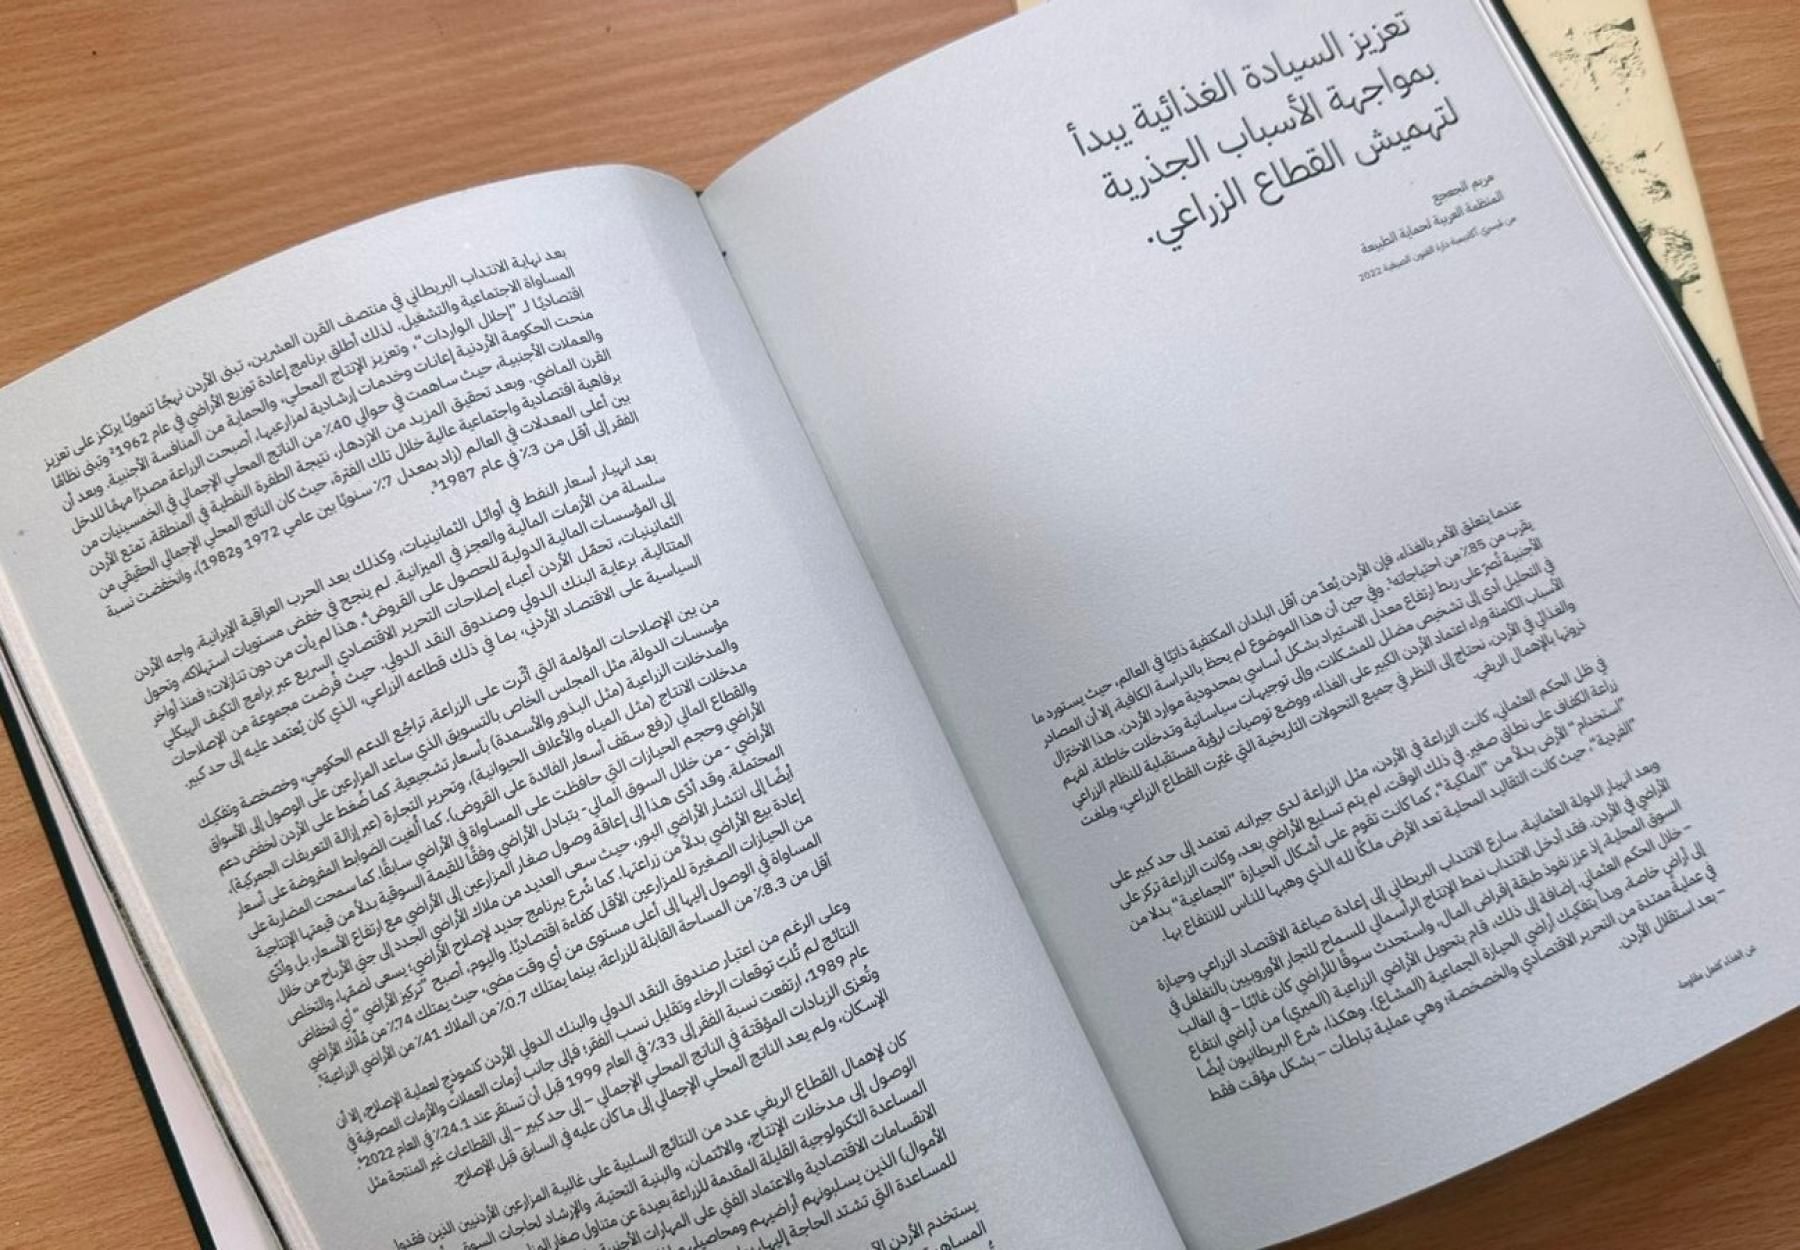 تعزيز السيادة الغذائية يبدأ
بمواجهة الأسباب الجذرية
لتهميش القطاع الزراعي.
مريم الجعجع
المنظمة العربية لحماية الطبيعة
من قيمي أكاديمية دارة الفنون الصيفية 2022
عندما يتعلق الأمر بالغذاء، فإن الأردن يُعدّ من أقل البلدان المكتفية ذاتيًا في العالم، حيث يستورد ما
يقرب من 85٪ من احتياجاته¹. وفي حين أن هذا الموضوع لم يحظ بالدراسة الكافية، إلا أن المصادر
الأجنبية تُصرّ على ربط ارتفاع معدل الاستيراد بشكل أساسي بمحدودية موارد الأردن. هذا الاختزال
في التحليل أدى إلى تشخيص مضلل للمشكلات، وإلى توجيهات سياساتية وتدخلات خاطئة. لفهم
الأسباب الكامنة وراء اعتماد الأردن الكبير على الغذاء، ووضع توصيات لرؤية مستقبلية للنظام الزراعي
والغذائي في الأردن، نحتاج إلى النظر في جميع التحولات التاريخية التي غيّرت القطاع الزراعي، وبلغت
ذروتها بالإهمال الريفي.
في ظل الحكم العثماني، كانت الزراعة في الأردن، مثل الزراعة لدى جيرانه، تعتمد إلى حد كبير على
زراعة الكفاف على نطاق صغير. في ذلك الوقت، لم يتم تسليع الأراضي بعد، وكانت الزراعة تركز على
"استخدام" الأرض بدلاً من "الملكية"، كما كانت تقوم على أشكال الحيازة "الجماعية" بدلا من
"الفردية"، حيث كانت التقاليد المحلية تعد الأرض ملكًا لله الذي وهبها للناس للانتفاع بها.
وبعد انهيار الدولة العثمانية، سارع الانتداب البريطاني إلى إعادة صياغة الاقتصاد الزراعي وحيازة
الأراضي في الأردن. فقد أدخل الانتداب نمط الإنتاج الرأسمالي للسماح للتجار الأوروبيين بالتغلغل في
السوق المحلية، إذ عزز نفوذ طبقة إقراض المال، واستحدث سوقًا للأراضي كان غائبًا – في الغالب
– خلال الحكم العثماني. إضافة إلى ذلك، قام بتحويل الأراضي الزراعية (الميري) من أراضي انتفاع
إلى أراضي خاصة، وبدأ بتفكيك أراضي الحيازة الجماعية (المشاع). وهكذا، شرع البريطانيون أيضًا
في عملية ممتدة من التحرير الاقتصادي والخصخصة؛ وهي عملية تباطأت – بشكل مؤقت فقط
– بعد استقلال الأردن.
عن الغذاء كفعل مقاومة
بعد نهاية الانتداب البريطاني في منتصف القرن العشرين، تبنى الأردن نهجًا تنمويًا يرتكز على تعزيز
المساواة الاجتماعية والتشغيل. لذلك أطلق برنامج إعادة توزيع الأراضي في عام 1962² وتبنى نظامًا
اقتصاديًا لـ "إحلال الواردات"، وتعزيز الإنتاج المحلي، والحماية من المنافسة الأجنبية. وبعد أن
منحت الحكومة الأردنية إعانات وخدمات إرشادية لمزارعيها، أصبحت الزراعة مصدرًا مهمًا للدخل
والعملات الأجنبية، حيث ساهمت في حوالي 40٪ من الناتج المحلي الإجمالي في الخمسينيات من
القرن الماضي. وبعد تحقيق المزيد من الازدهار، نتيجة الطفرة النفطية في المنطقة، تمتع الأردن
برفاهية اقتصادية واجتماعية عالية خلال تلك الفترة، حيث كان الناتج المحلي الإجمالي الحقيقي من
بين أعلى المعدلات في العالم (زاد بمعدل 7٪ سنويًا بين عامي 1972 و1982)، وانخفضت نسبة
الفقر إلى أقل من 3٪ في عام 1987³.
بعد انهيار أسعار النفط في أوائل الثمانينيات، وكذلك بعد الحرب العراقية الإيرانية، واجه الأردن
سلسلة من الأزمات المالية والعجز في الميزانية. لم ينجح في خفض مستويات استهلاكه، وتحول
إلى المؤسسات المالية الدولية للحصول على القروض⁴. هذا لم يأت من دون تنازلات؛ فمنذ أواخر
الثمانينيات، تحمّل الأردن أعباء إصلاحات التحرير الاقتصادي السريع عبر برامج التكيف الهيكلي
المتتالية، برعاية البنك الدولي وصندوق النقد الدولي. حيث فُرضت مجموعة من الإصلاحات
السياسية على الاقتصاد الأردني، بما في ذلك قطاعه الزراعي، الذي كان يُعتمد عليه إلى حد كبير.
من بين الإصلاحات المؤلمة التي أثّرت على الزراعة، تراجُع الدعم الحكومي، وخصخصة وتفكيك
مؤسسات الدولة، مثل المجلس الخاص بالتسويق الذي ساعد المزارعين على الوصول إلى الأسواق
والمدخلات الزراعية (مثل البذور والأسمدة) بأسعار تشجيعية. كما ضُغط على الأردن لخفض دعم
مدخلات الانتاج (مثل المياه والأعلاف الحيوانية)، وتحرير التجارة (عبر إزالة التعريفات الجمركية)،
والقطاع المالي (رفع سقف أسعار الفائدة على القروض). كما أُلغيت الضوابط المفروضة على أسعار
الأراضي وحجم الحيازات التي حافظت على المساواة في الأراضي سابقًا. كما سمحت المضاربة على
الأراضي - من خلال السوق المالي- بتبادل الأراضي وفقًا للقيمة السوقية بدلاً من قيمتها الإنتاجية
المحتملة. وقد أدّى هذا إلى إعاقة وصول صغار المزارعين إلى الأراضي مع ارتفاع الأسعار، بل وأدّى
أيضًا إلى انتشار الأراضي البور، حيث سعى العديد من ملاك الأراضي الجدد إلى جني الأرباح من خلال
إعادة بيع الأراضي بدلاً من زراعتها. كما شُرع ببرنامج جديد لإصلاح الأراضي؛ يسعى لضمّها، والتخلص
من الحيازات الصغيرة للمزارعين الأقل كفاءة اقتصاديًا. واليوم، أصبح "تركيز الأراضي" أي انخفاض
المساواة في الوصول إليها إلى أعلى مستوى من أي وقت مضى، حيث يمتلك 74٪ من مُلاك الأراضي
أقل من 8.3٪ من المساحة القابلة للزراعة، بينما يمتلك 0.7٪ من الملاك 41٪ من الأراضي الزراعية⁵.
وعلى الرغم من اعتبار صندوق النقد الدولي والبنك الدولي الأردن كنموذج لعملية الإصلاح، إلا أن
النتائج لم تُلبّ توقعات الرخاء وتقليل نسب الفقر؛ فإلى جانب أزمات العملات والأزمات المصرفية في
عام 1989، ارتفعت نسبة الفقر إلى 33٪ في العام 1999 قبل أن تستقر عند 24.1٪ في العام 2022⁶.
وتُعزى الزيادات المؤقتة في الناتج المحلي الإجمالي – إلى حد كبير – إلى القطاعات غير المنتجة مثل
الإسكان، ولم يعد الناتج المحلي الإجمالي إلى ما كان عليه في السابق قبل الإصلاح.
كان لإهمال القطاع الريفي عدد من النتائج السلبية على غالبية المزارعين الأردنيين الذين فقدوا
الوصول إلى مدخلات الإنتاج، والائتمان، والبنية التحتية، والإرشاد لحاجات السوق
المساعدة التكنولوجية القليلة المقدمة للزراعة بعيدة عن متناول صغار
الانقسامات الاقتصادية والاعتماد الفني على المهارات الأجنبية
الأموال) الذين يسلبونهم أراضيهم ومحاصيلهم
للمساعدة التي تشتد الحاجة إليها
يستخدم الأردن